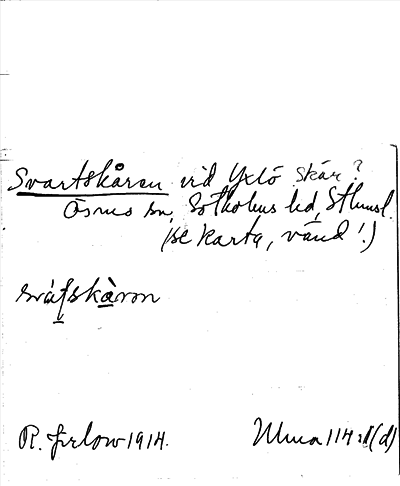 Svartskåren vid Yxlö skär?
Ösmo sn, Sotholms hd, Sthmsl.
(se karta, vänd!)
svàfskàron
R. Jirlow 1914.
Ulma 114:1(d)